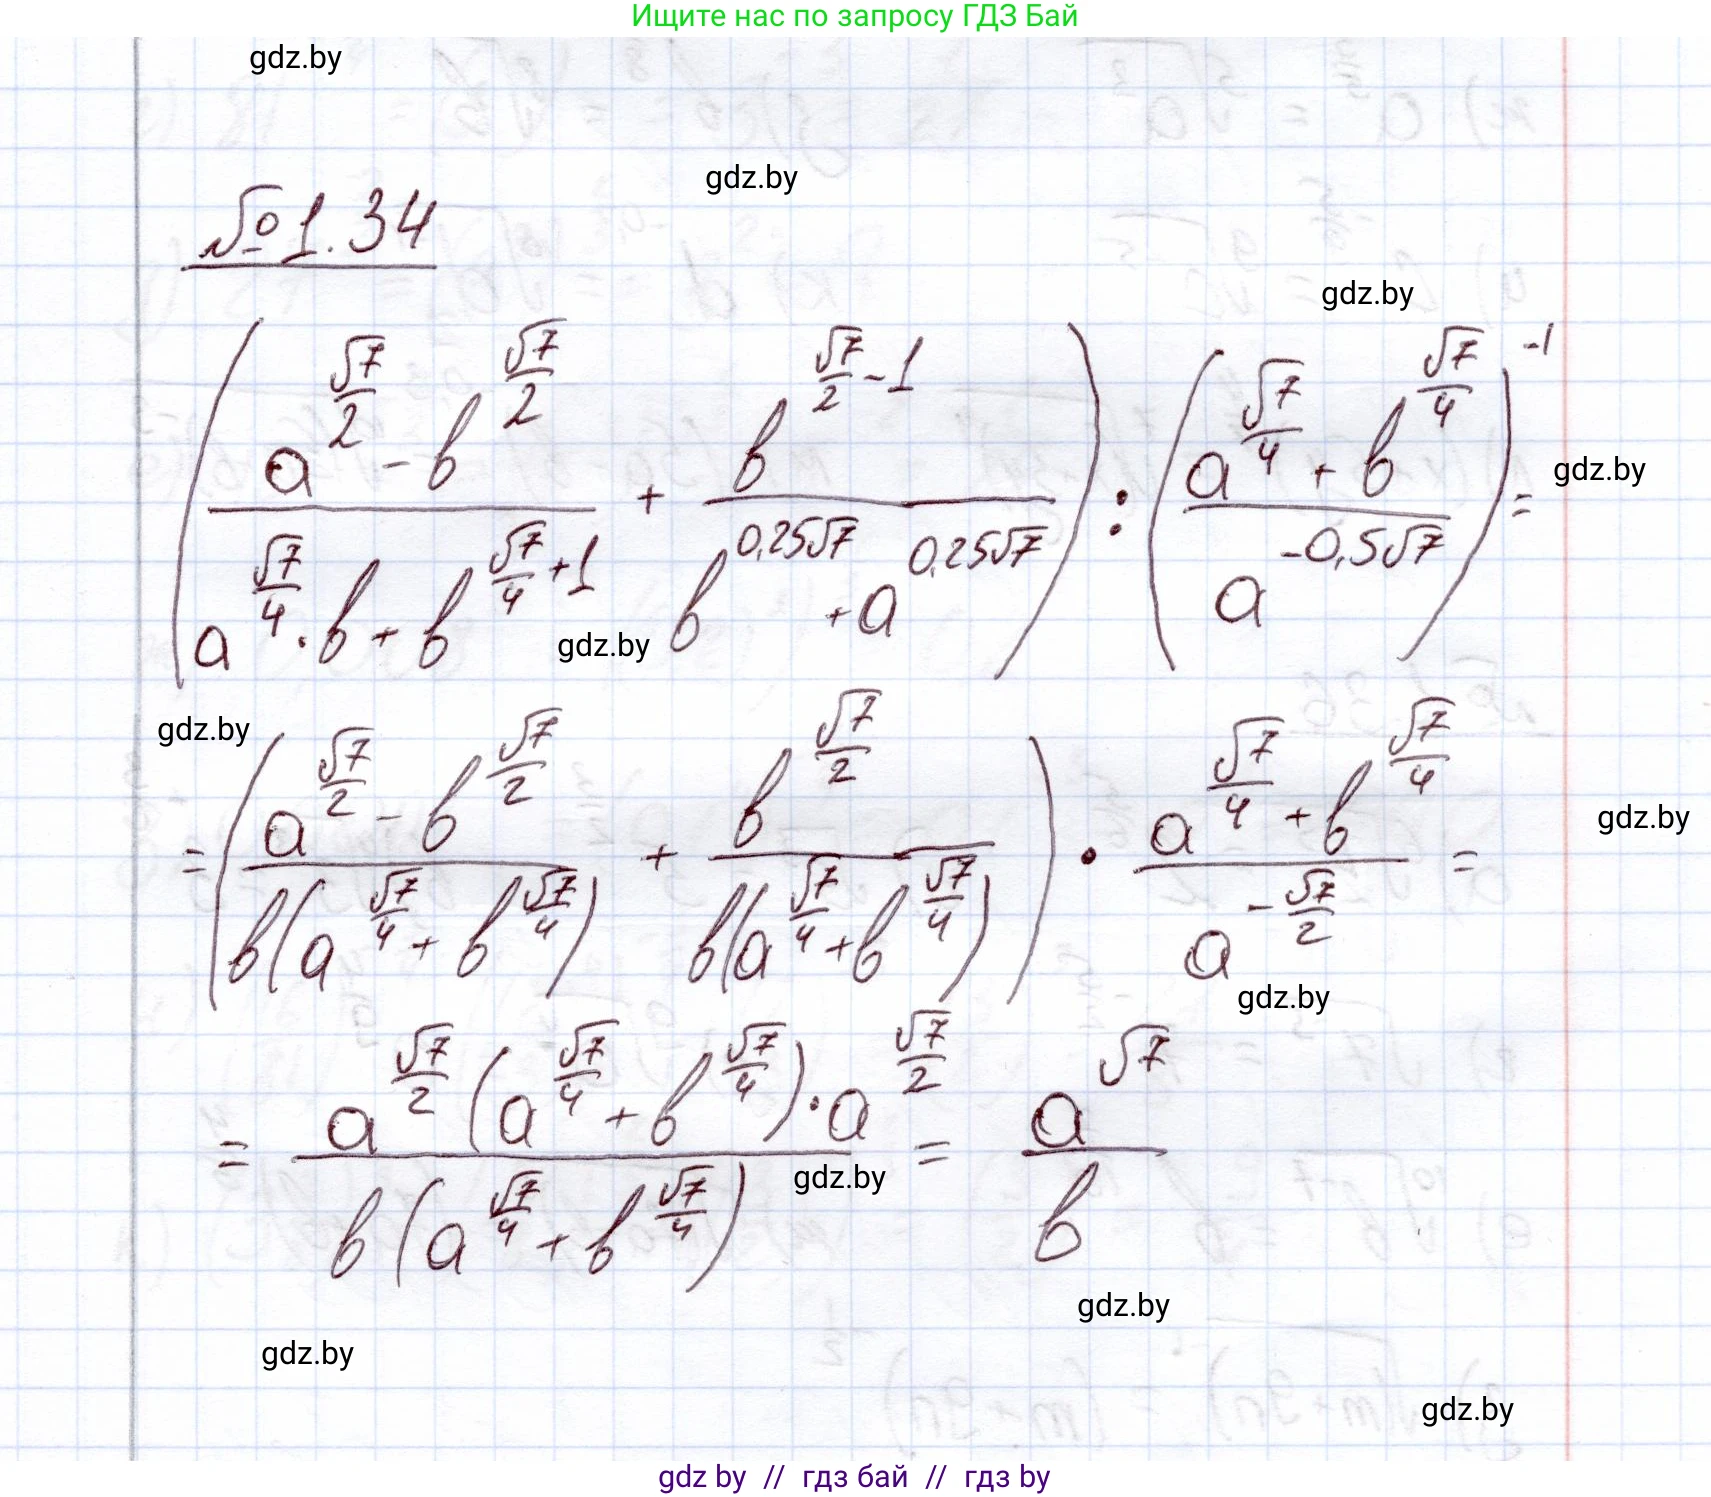 Ищите нас по запросу ГДЗ Бай
gdz.by
gdz.by
№1.34
gdz.by
(a^(√7/2) - b^(√7/2))/(a^(√7/4)·b + b^(√7/4+1)) + b^(√7/2-1)/(b^(0,25√7) + a^(0,25√7))) : ((a^(√7/4) + b^(√7/4))/a^(-0,5√7))^(-1) =
gdz.by
gdz.by
gdz.by
= ((a^(√7/2) - b^(√7/2))/(b(a^(√7/4) + b^(√7/4))) + b^(√7/2)/(b(a^(√7/4) + b^(√7/4)))) · (a^(√7/4) + b^(√7/4))/a^(-√7/2) =
gdz.by
gdz.by
= (a^(√7/2)(a^(√7/4) + b^(√7/4))·a^(√7/2))/(b(a^(√7/4) + b^(√7/4))) = a^(√7)/b
gdz.by
gdz.by
gdz.by
gdz.by
gdz by // гдз бай // гдз by